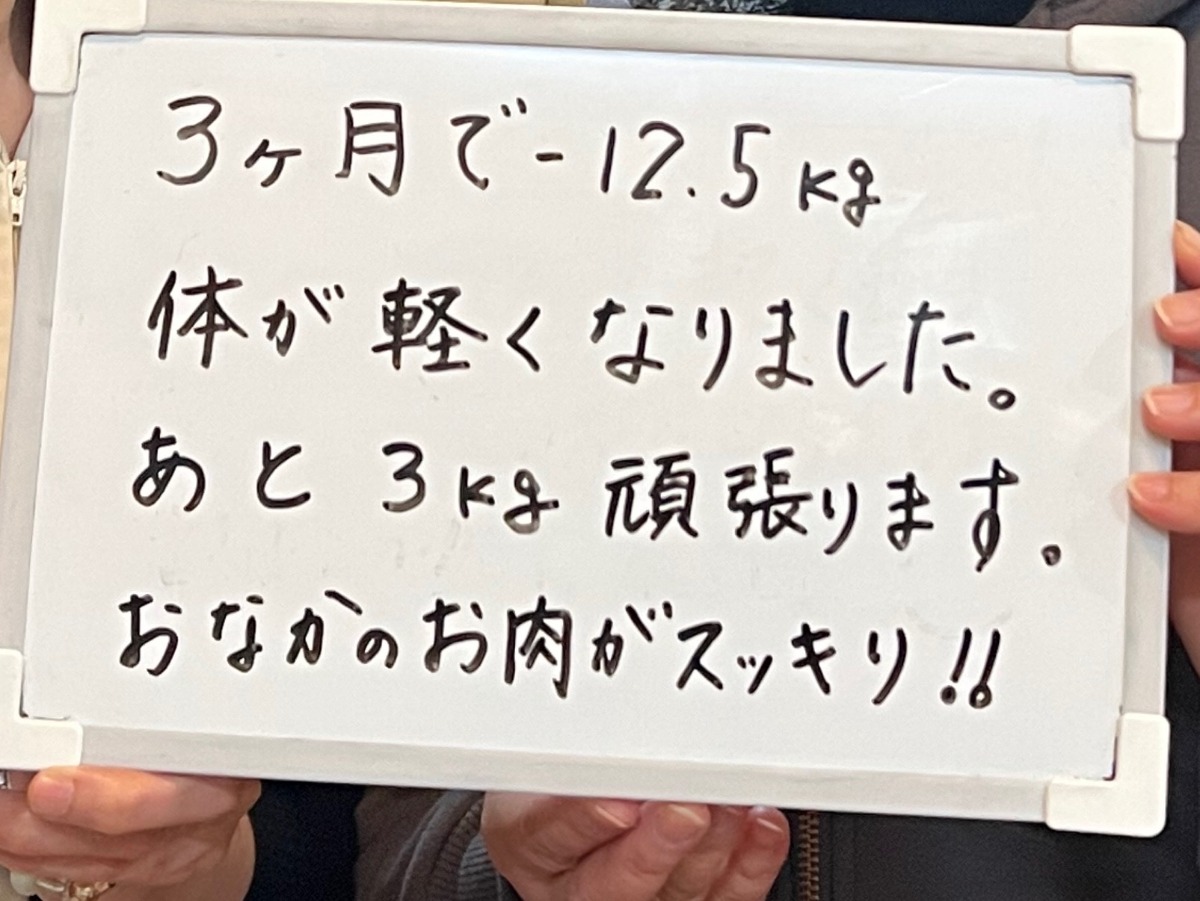 3ヶ月で-12.5kg
体が軽くなりました。
あと3kg頑張ります。
おなかのお肉がスッキリ!!